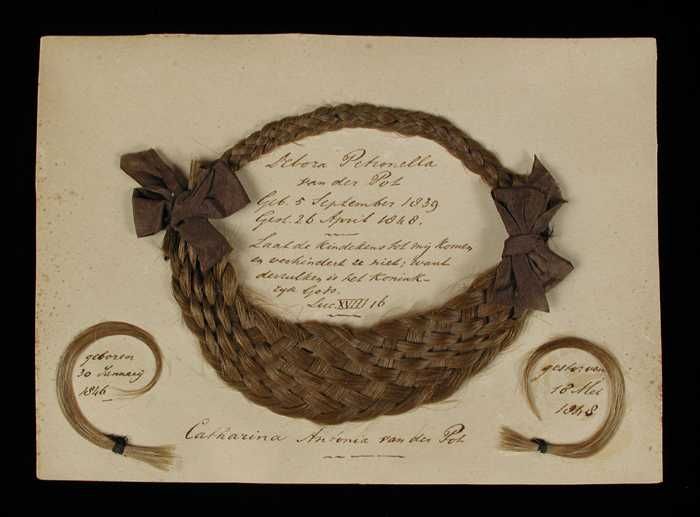 Debora Petronella
van der Pot
Geb. 5 September 1839
Gest. 26 April 1848.
Laat de kinderkens tot mij komen
en verhindert ze niet; want
derzulken is het Konink-
rijk Gods.
Luc. XVIII 16
geboren
30 January
1846
gestorven
18 Mei
1848
Catharina Antonia van der Pot